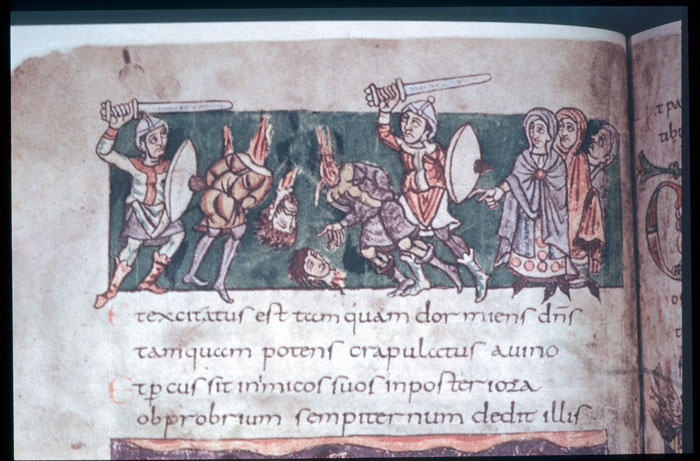 Et excitatus est tamquam dormiens dn̄s
tamquam potens crapulatus auino
Et ꝑcussit inimicos suos inposteriora
obprobrium sempiternum dedit illis.